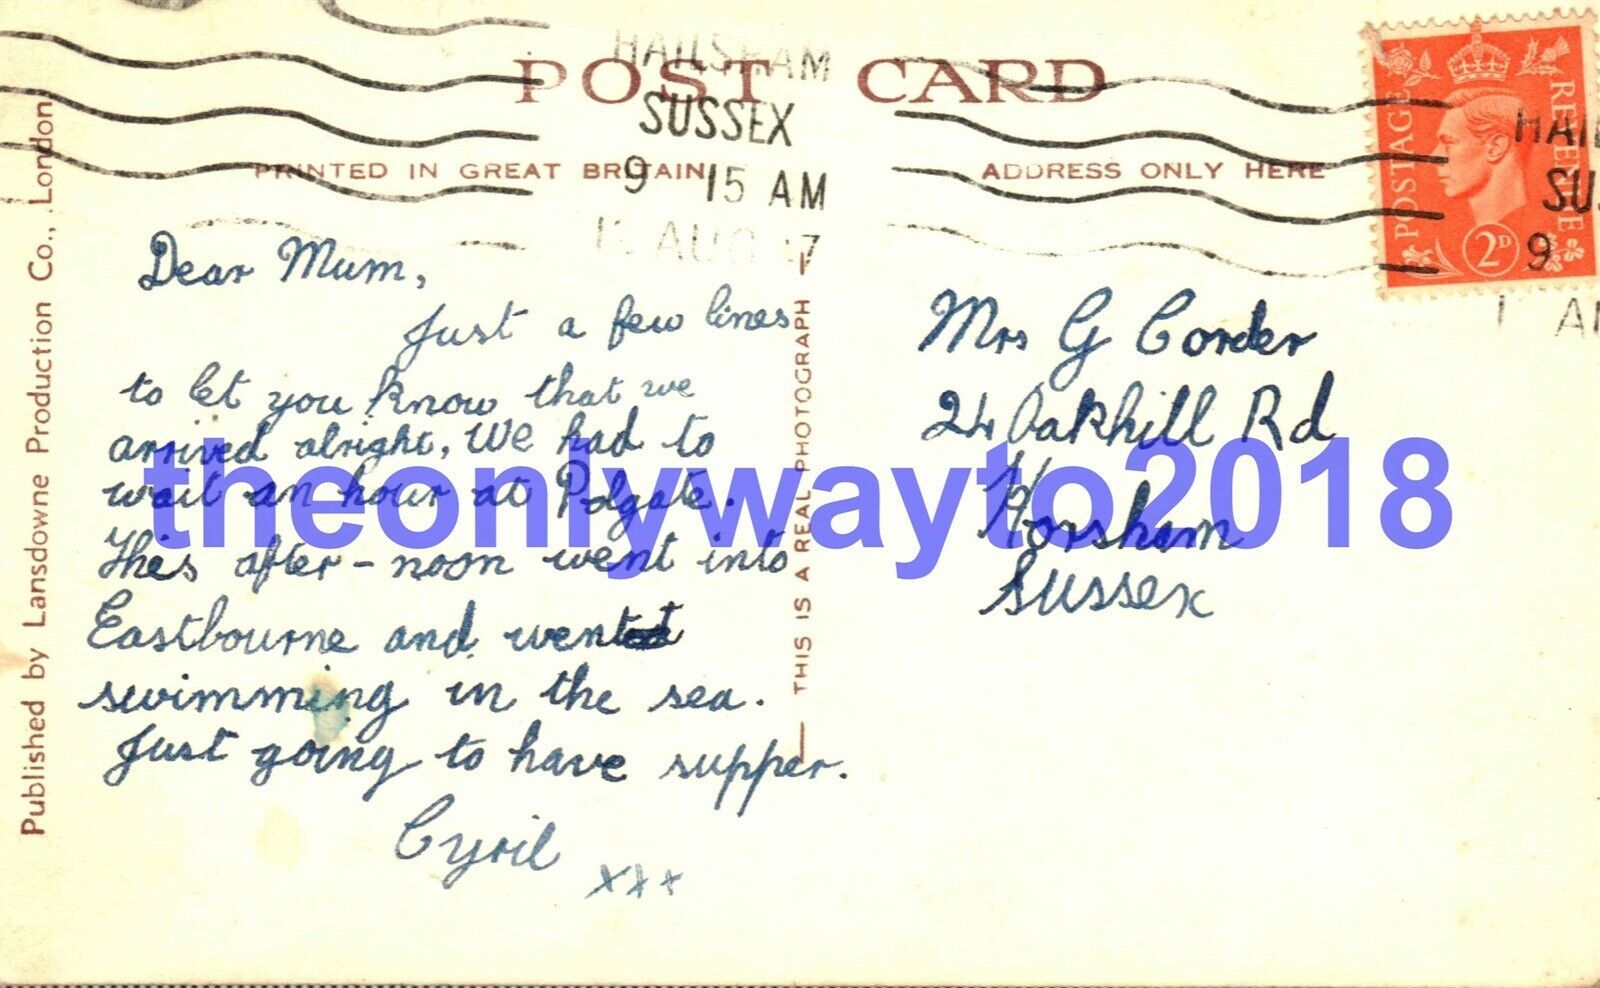 POST CARD
PRINTED IN GREAT BRITAIN
ADDRESS ONLY HERE
HAILSHAM
SUSSEX
9 15 AM
AUG 
POSTAGE
REVENUE
2D
HAI
SU
9
Dear Mum,
Just a few lines
to let you know that we
arrived alright, We had to
wait an hour at Polgate.
This after-noon went into
Eastbourne and went
swimming in the sea.
Just going to have supper.
Cyril
xxx
Mrs G Corder
24 Oakhill Rd
Horsham
Sussex
Published by Lansdowne Production Co., London.
THIS IS A REAL PHOTOGRAPH
theonlywayto2018